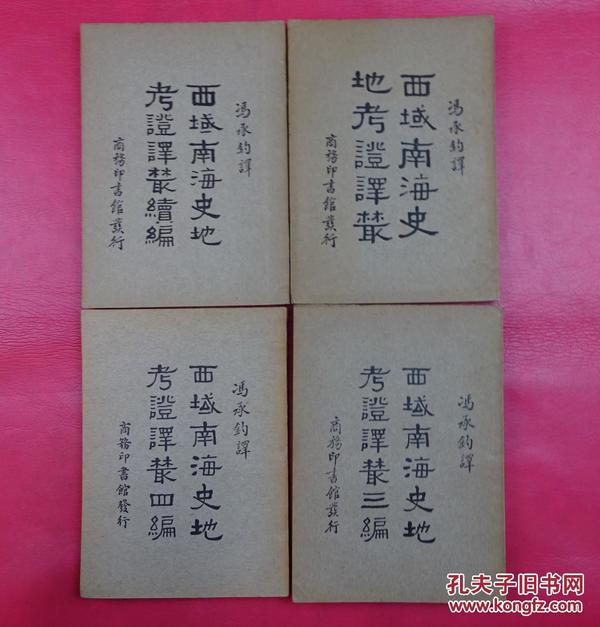 馮承鈞譯
西域南海史
地考證譯叢
商務印書館發行
馮承鈞譯
西域南海史地
考證譯叢續編
商務印書館發行
馮承鈞譯
西域南海史地
考證譯叢三編
商務印書館發行
馮承鈞譯
西域南海史地
考證譯叢四編
商務印書館發行
孔夫子旧书网
www.kongfz.com